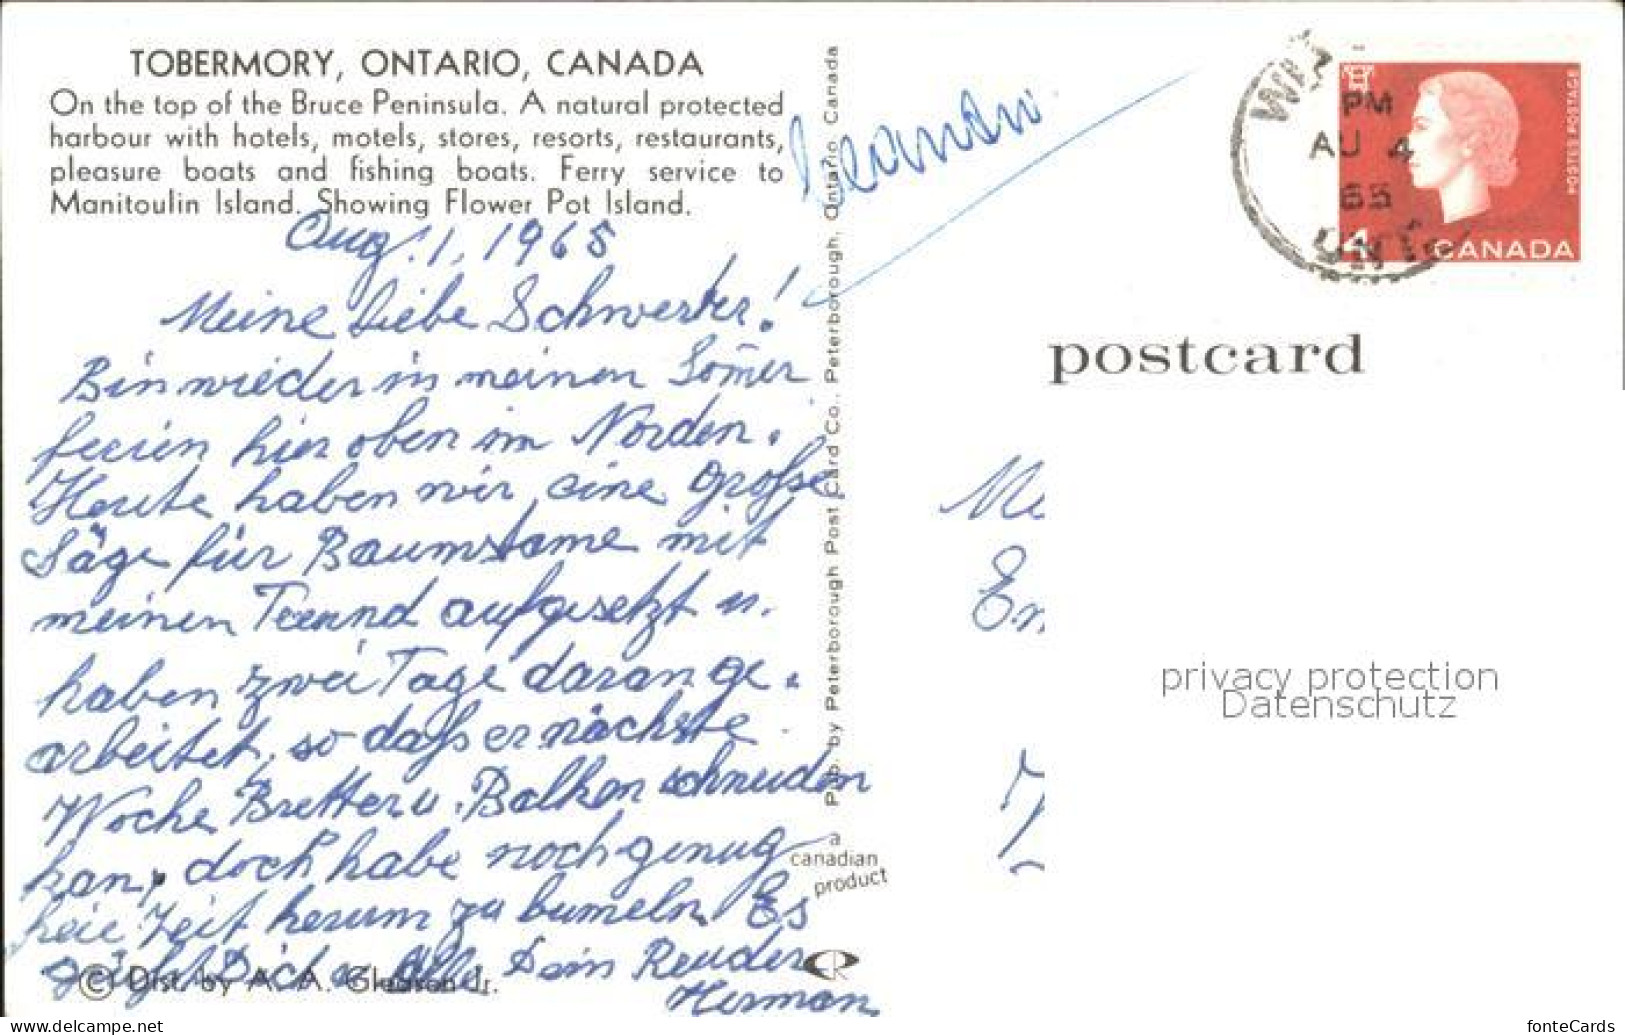 TOBERMORY, ONTARIO, CANADA
On the top of the Bruce Peninsula. A natural protected
harbour with hotels, motels, stores, resorts, restaurants,
pleasure boats and fishing boats. Ferry service to
Manitoulin Island. Showing Flower Pot Island.
Aug. 1, 1965
Meine Liebe Schwester!
Bin wieder in meinen Som̄er
ferien hier oben im Norden.
Heute haben wir eine große
Säge für Baumstame mit
meinen Freund aufgesetzt u.
haben zwei Tage daran ge-
arbeitet, so daß er nächste
Woche Bretter u. Balken schneiden
kan, doch habe noch genug
freie Zeit herum zu bumeln. Es
grüßt Dich u. Alle Dein Bruder
Herman
© Dist. by A. A. Gleason Jr.
Pub. by Peterborough Post Card Co., Peterborough, Ontario, Canada
a
canadian
product
PM
AU 4
65
ONT.
POSTES POSTAGE
4 CANADA
postcard
Me
En
privacy protection
Datenschutz
www.delcampe.net
fonteCards